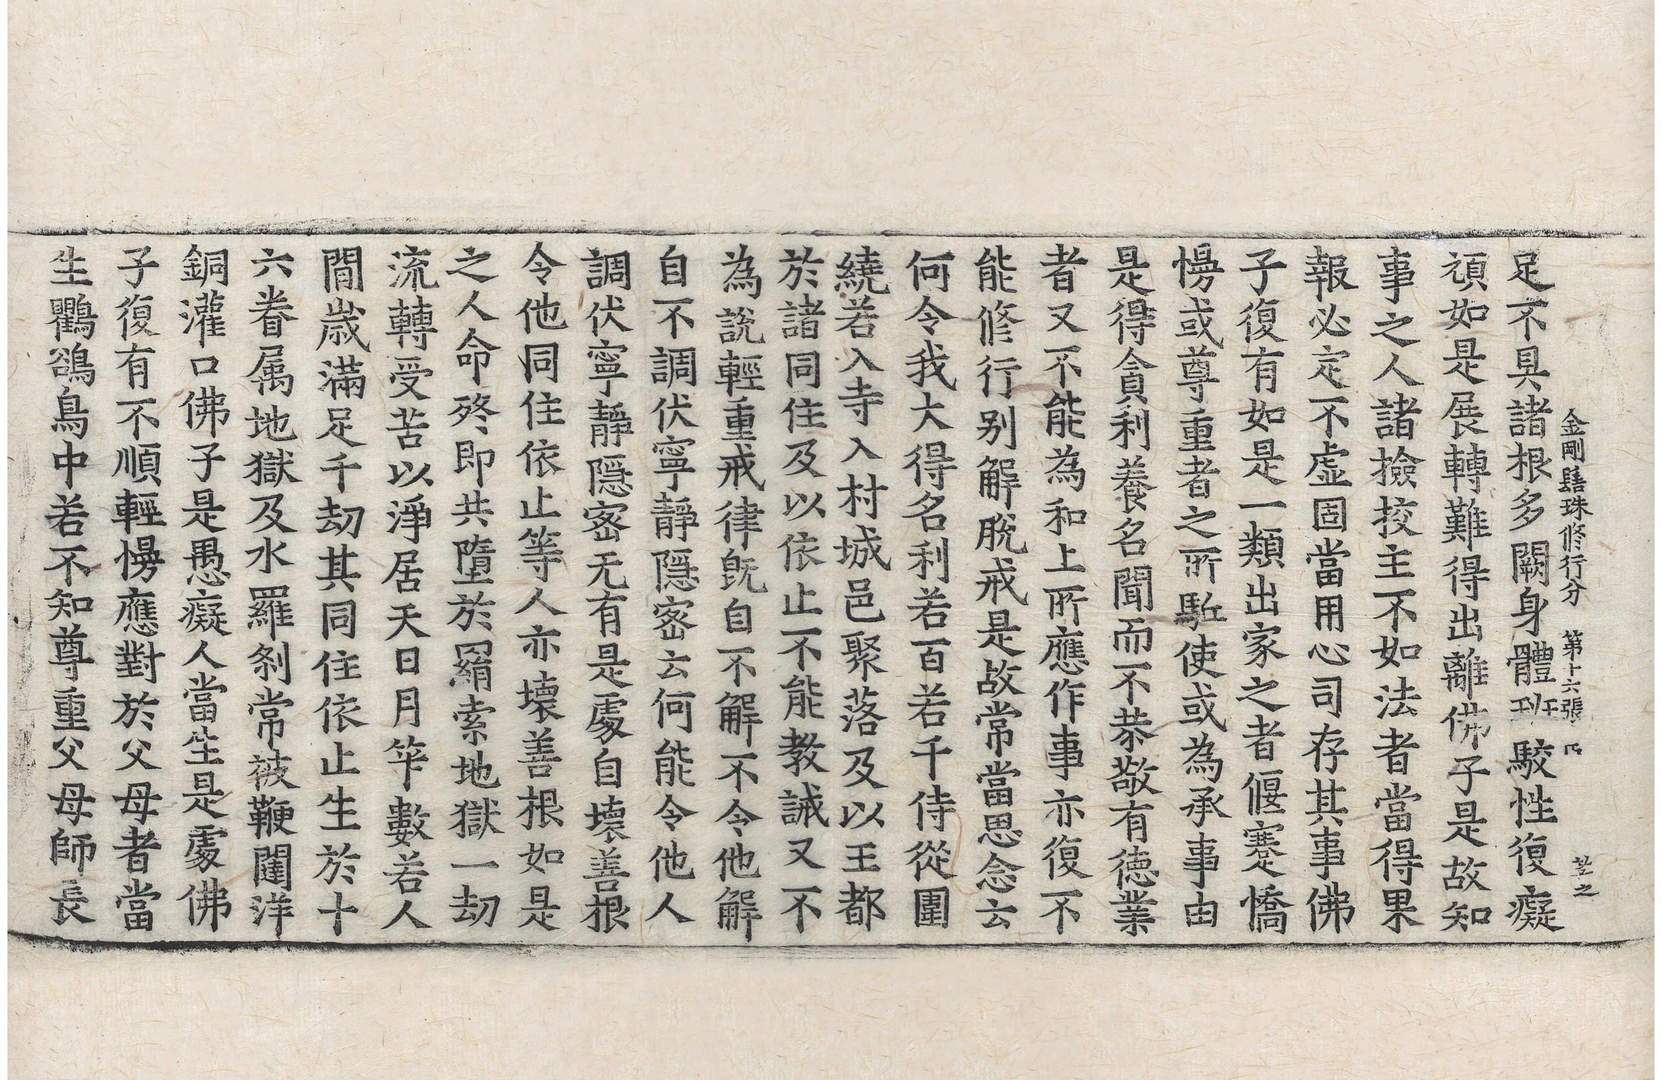 金剛髻珠修行分 第十六張
足不具諸根多闕身體班駮性復癡
頑如是展轉難得出離佛子是故知
事之人諸撿挍主不如法者當得果
報必定不虛固當用心司存其事佛
子復有如是一類出家之者偃蹇憍
慢或尊重者之所駈使或為承事由
是得貪利養名聞而不恭敬有德業
者又不能為和上所應作事亦復不
能修行别解脫戒是故常當思念云
何令我大得名利若百若千侍從圍
繞若入寺入村城邑聚落及以王都
於諸同住及以依止不能教誡又不
為說輕重戒律旣自不解不令他解
自不調伏寧靜隱密云何能令他人
調伏寧靜隱密无有是處自壞善根
令他同住依止等人亦壞善根如是
之人命終即共墮於羂索地獄一劫
流轉受苦以淨居天日月笇數若人
閒歲滿足千劫其同住依止生於十
六眷属地獄及水羅剎常被鞭闥洋
銅灌口佛子是愚癡人當生是處佛
子復有不順輕慢應對於父母者當
生鸜鵒鳥中若不知尊重父母師長